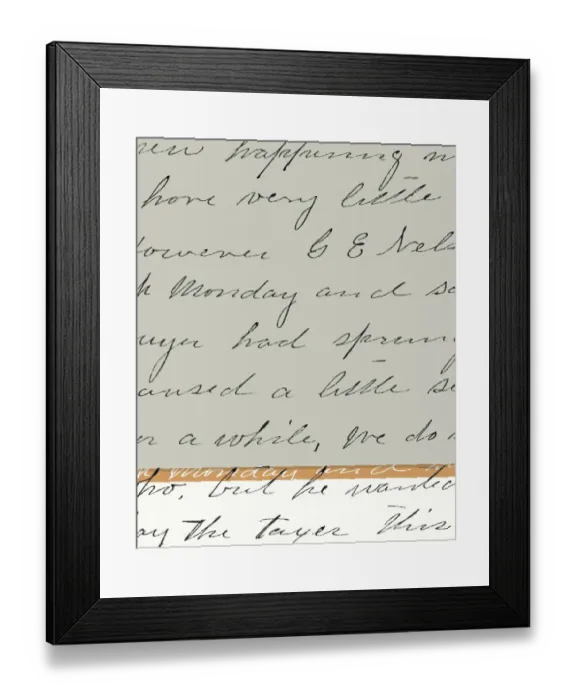 een happening n
have very little
owever G E Nels
h Monday and so
uyer had sprung
aused a little se
n a while, We do n
n Monday and s
ho, but he wanted
ay the taxes this